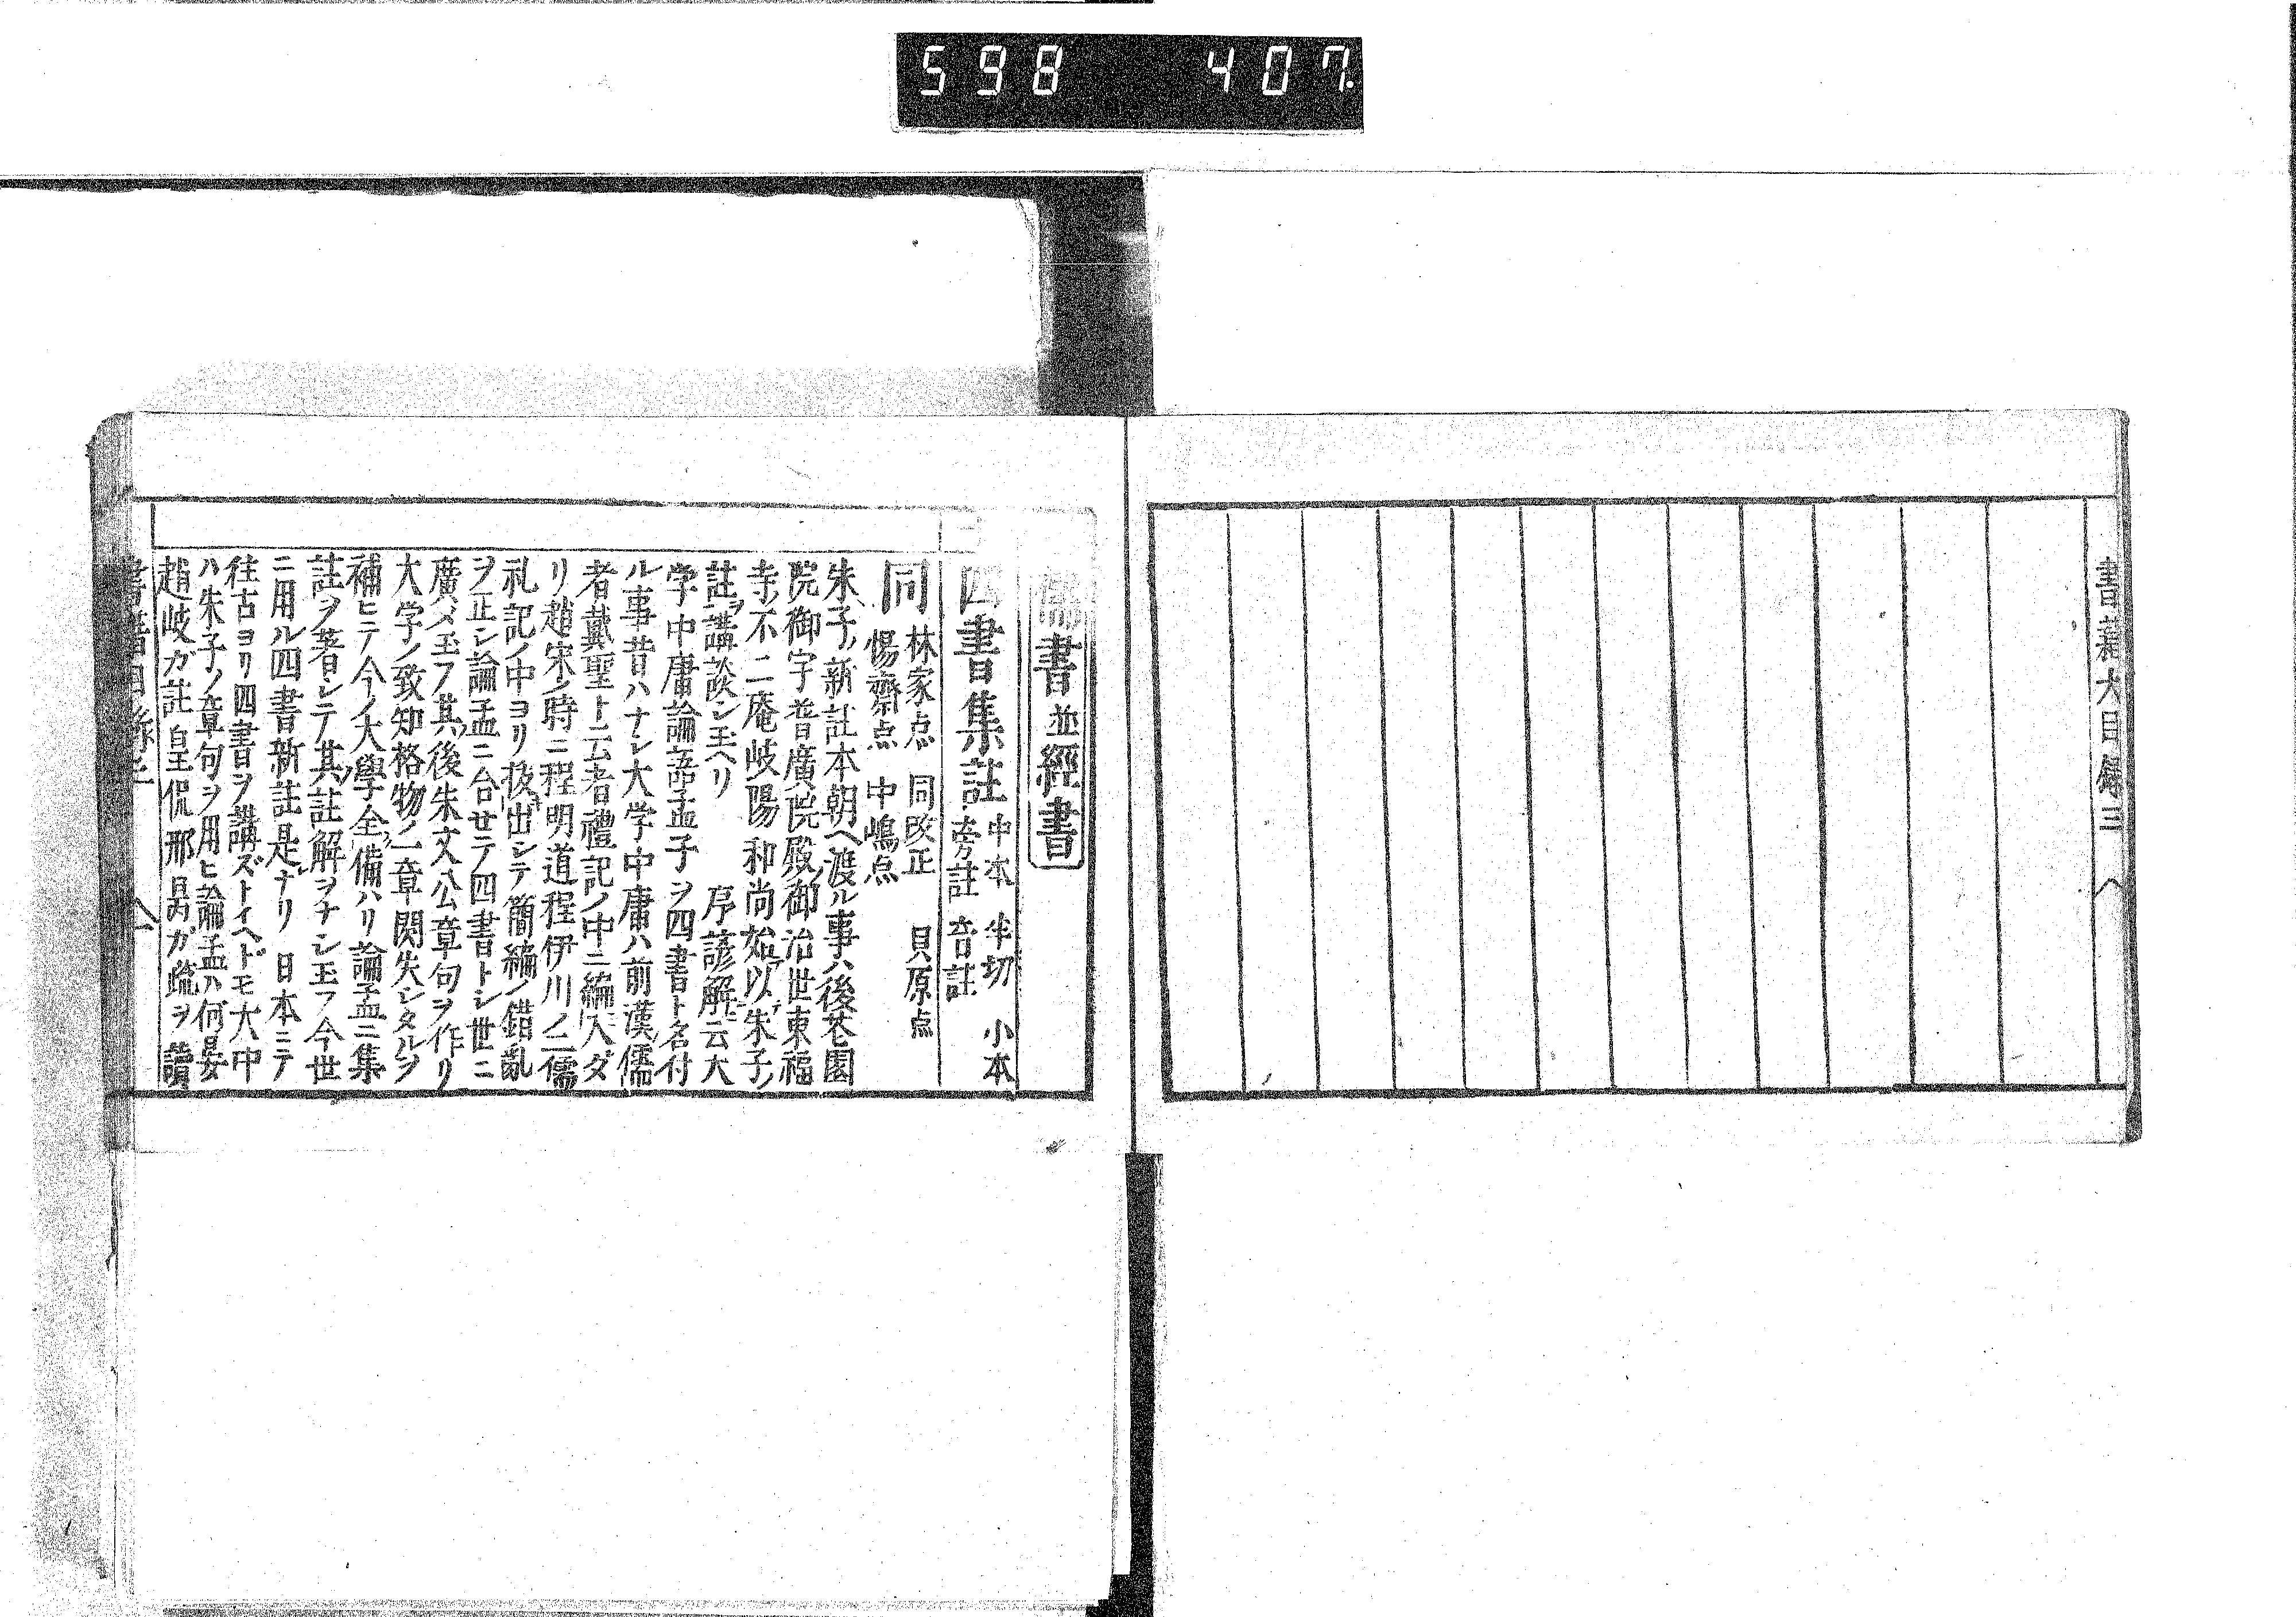 598 407
書籍大目録三 八
儒書並經書
四書集註 中本 半切 小本
旁註 音註
同 林家点 同改正 貝原点
惕齋点 中嶋点
朱子ノ新註本朝ヘ渡ル事ハ後花園
院御宇普廣院殿御治世東福
寺ノ不二庵岐陽和尚始以朱子ノ
註ヲ講談シ玉ヘリ 序諺解云大
学中庸論語孟子ヲ四書ト名付
ル事昔ハナシ大学中庸ハ前漢ノ儒
者戴聖ト云者禮記ノ中ニ編入ダ
リ趙宋ノ時ニ程明道程伊川ノ二儒
礼記ノ中ヨリ拔出シテ簡編ノ錯乱
ヲ正シ論孟ニ合セテ四書トシ世ニ
廣メ玉フ其後朱文公章句ヲ作リ
大学ノ致知格物ノ一章闕失シタルヲ
補ヒテ今ノ大學全ク備ハリ論孟ニ集
註ヲ著シテ其註解ヲナシ玉フ今世
ニ用ル四書新註是ナリ 日本ニテ
往古ヨリ四書ヲ講ズトイヘドモ大中
ハ朱子ノ章句ヲ用ヒ論孟ハ何晏
趙岐ガ註皇侃邢昺ガ疏ヲ讀